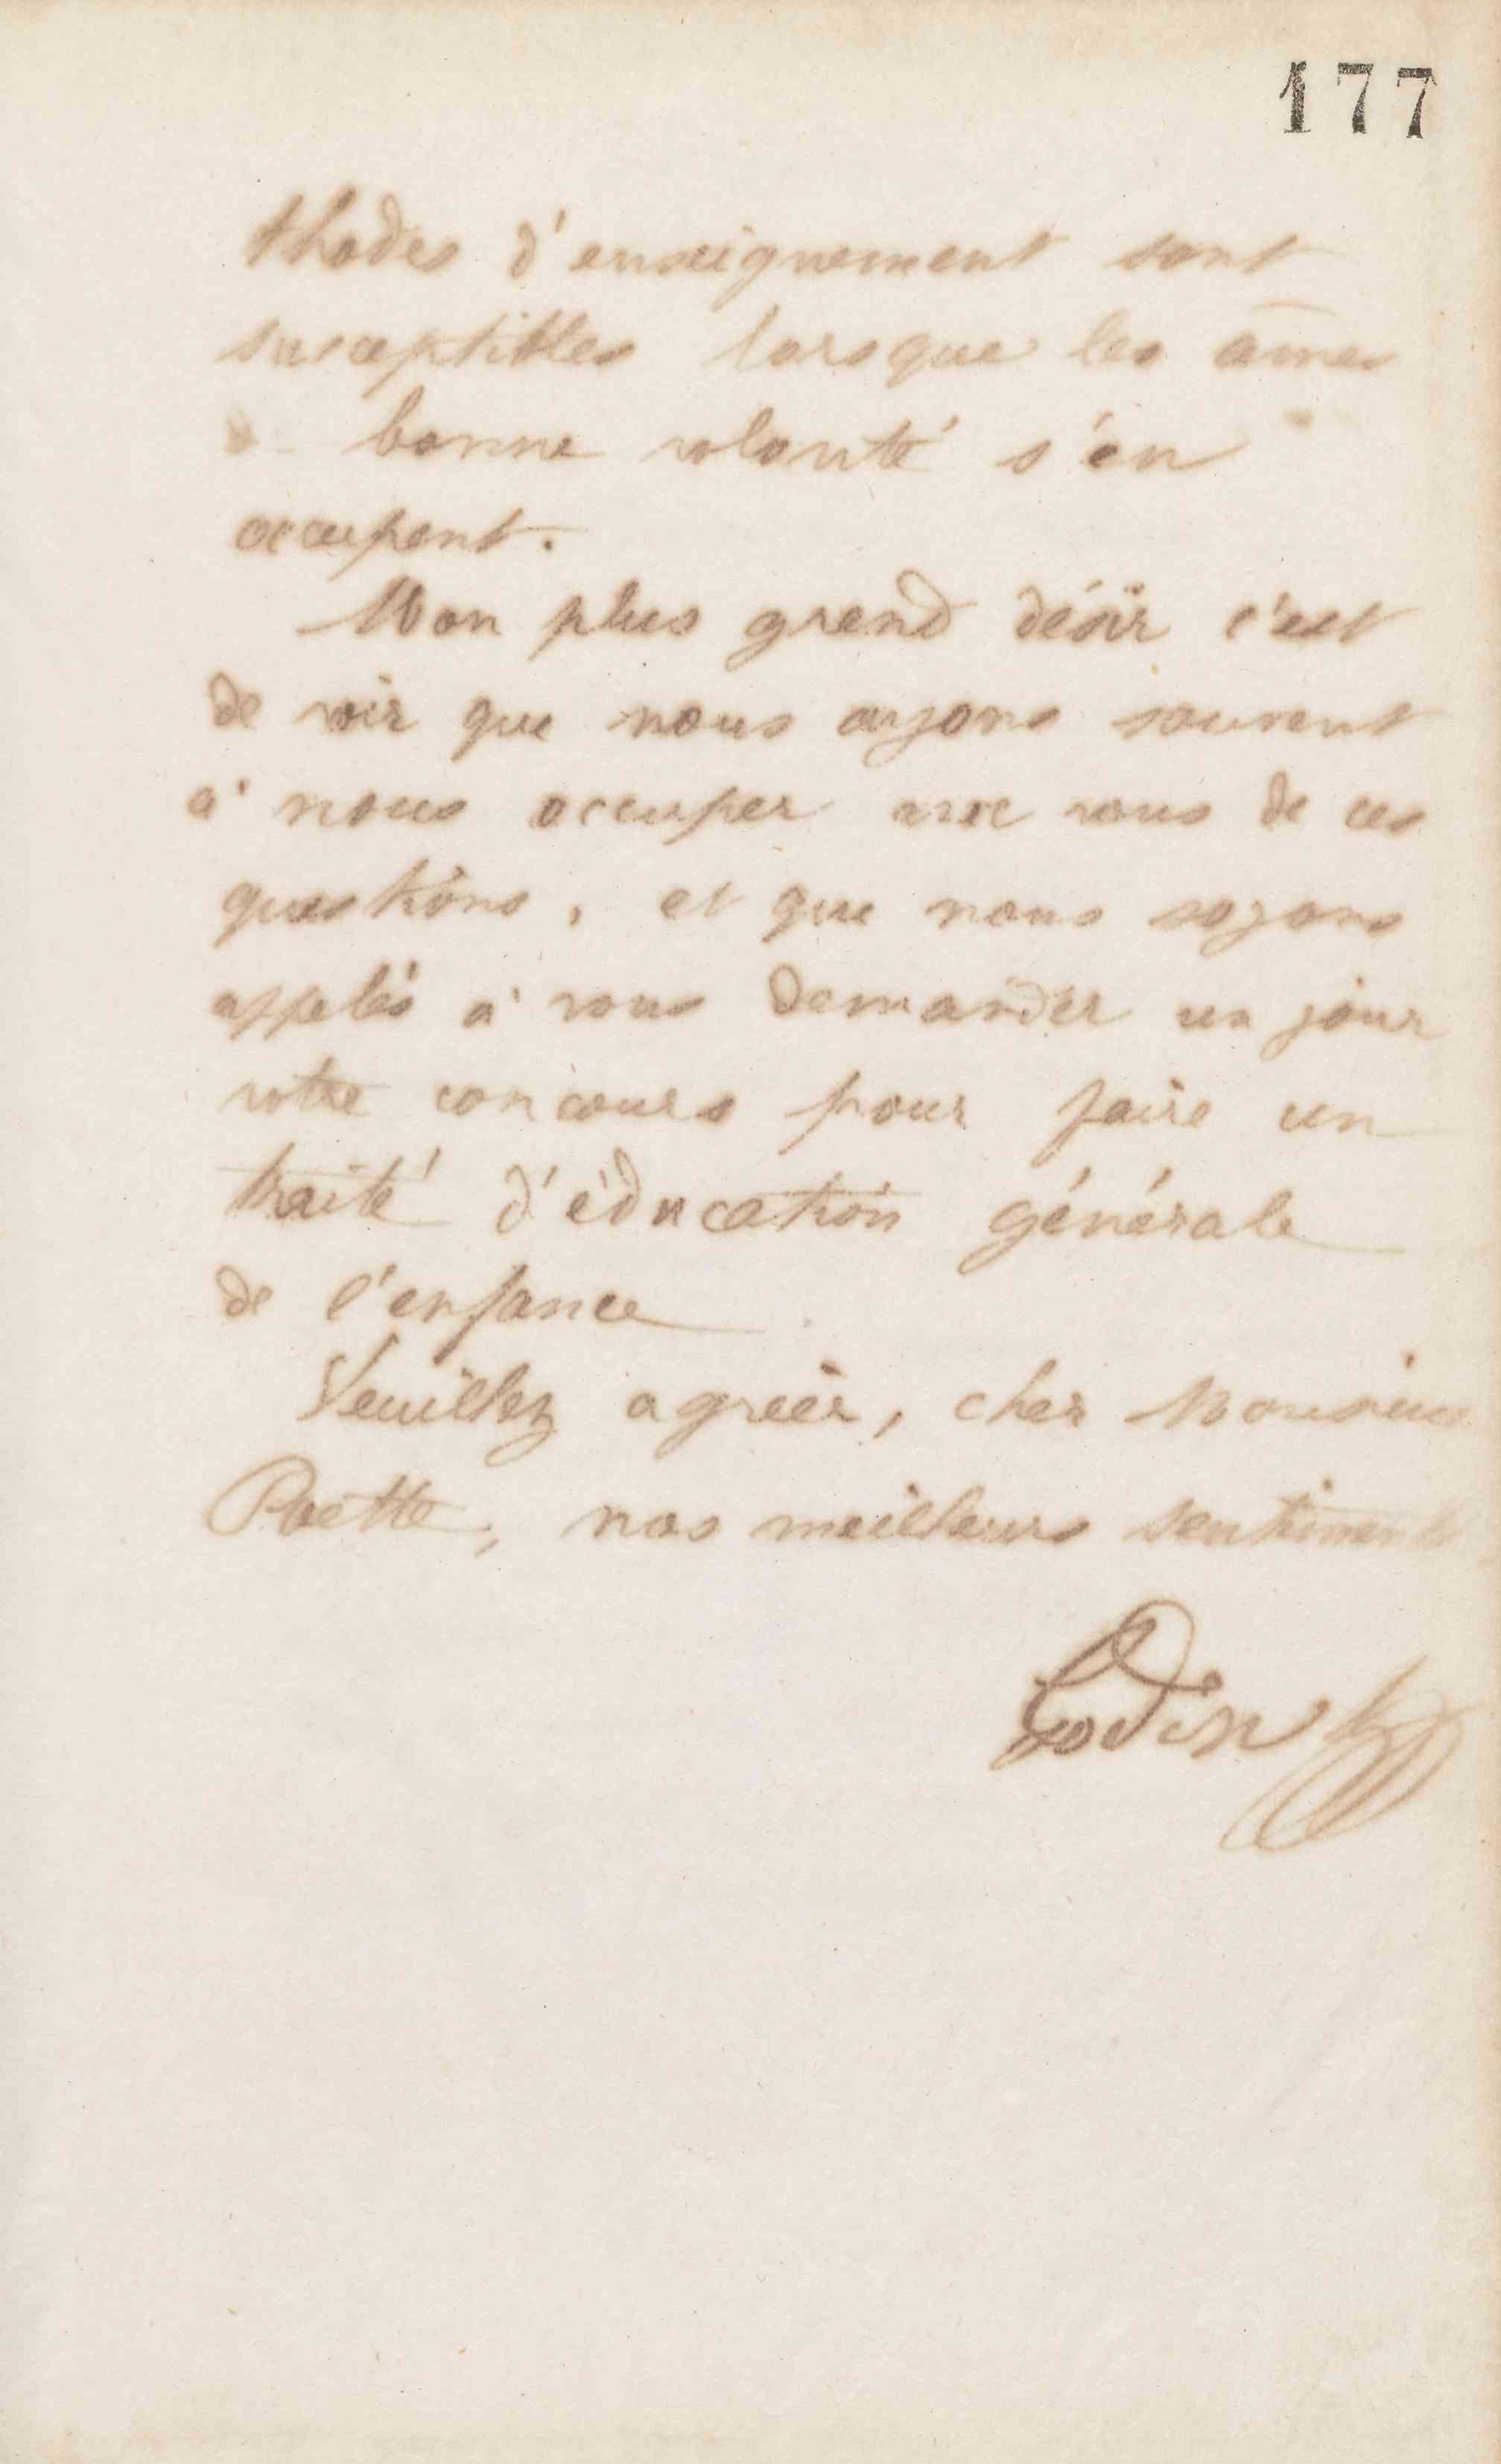 177
thodes d'enseignement sont
susceptibles lorsque les âmes
bonne volonté s'en
occupent.
Mon plus grend désir c'est
de voir que nous ayons souvent
à nous occuper avec vous de ces
questions, et que nous soyons
appelés à vous demander un jour
votre concours pour faire un
traité d'éducation générale
de l'enfance
Veuillez agréer, cher Monsieur
Poëtte, nos meilleurs sentiments
Godin